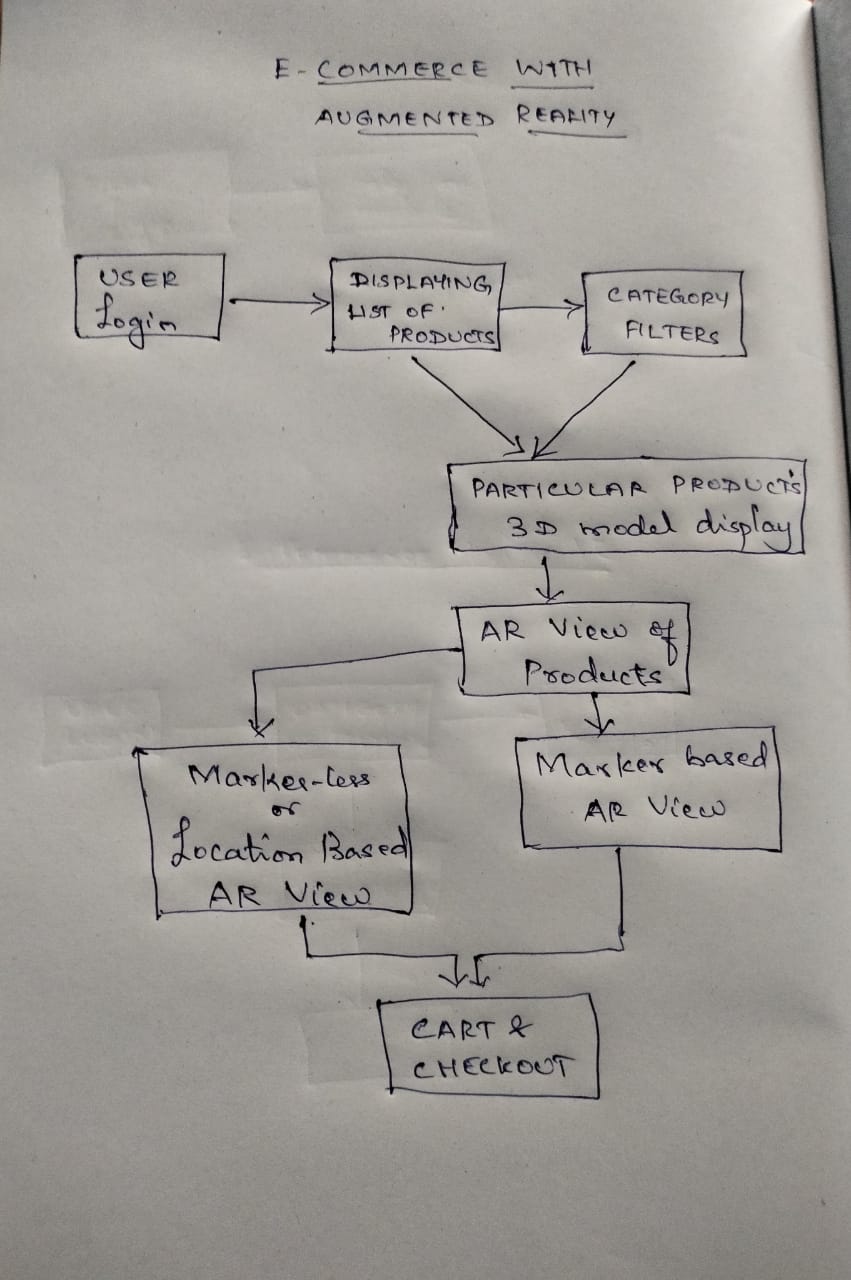 E-COMMERCE WITH
AUGMENTED REALITY
USER
Login
DISPLAYING
LIST OF
PRODUCTS
CATEGORY
FILTERS
PARTICULAR PRODUCT'S
3D model display
AR View of
Products
Marker-less
or
Location Based
AR View
Marker based
AR View
CART &
CHECKOUT